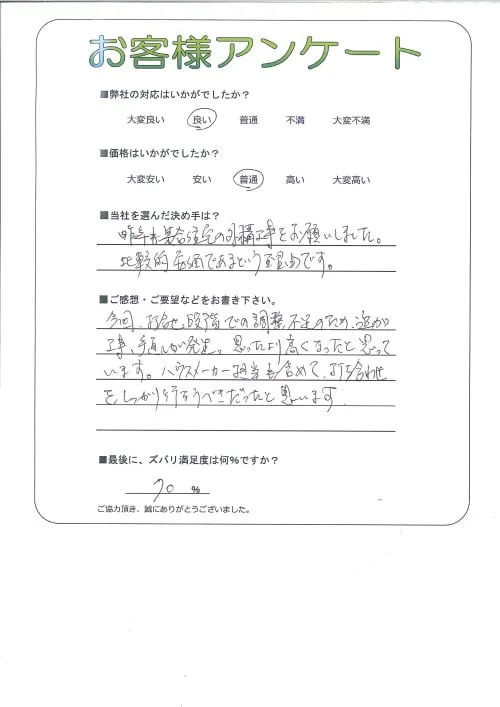 お客様アンケート
■弊社の対応はいかがでしたか？
大変良い 良い 普通 不満 大変不満
■価格はいかがでしたか？
大変安い 安い 普通 高い 大変高い
■当社を選んだ決め手は？
昨年末集合住宅の外構工事をお願いしました。
比較的安価であるという理由です。
■ご感想・ご要望などをお書き下さい。
今回、打合せ段階での調整不足のため、追加
工事、手直しが発生。思ったより高くなったと思って
います。ハウスメーカー担当も含めて、打ち合わせ
をしっかり行うべきだったと思います。
■最後に、ズバリ満足度は何％ですか？
70 ％
ご協力頂き、誠にありがとうございました。